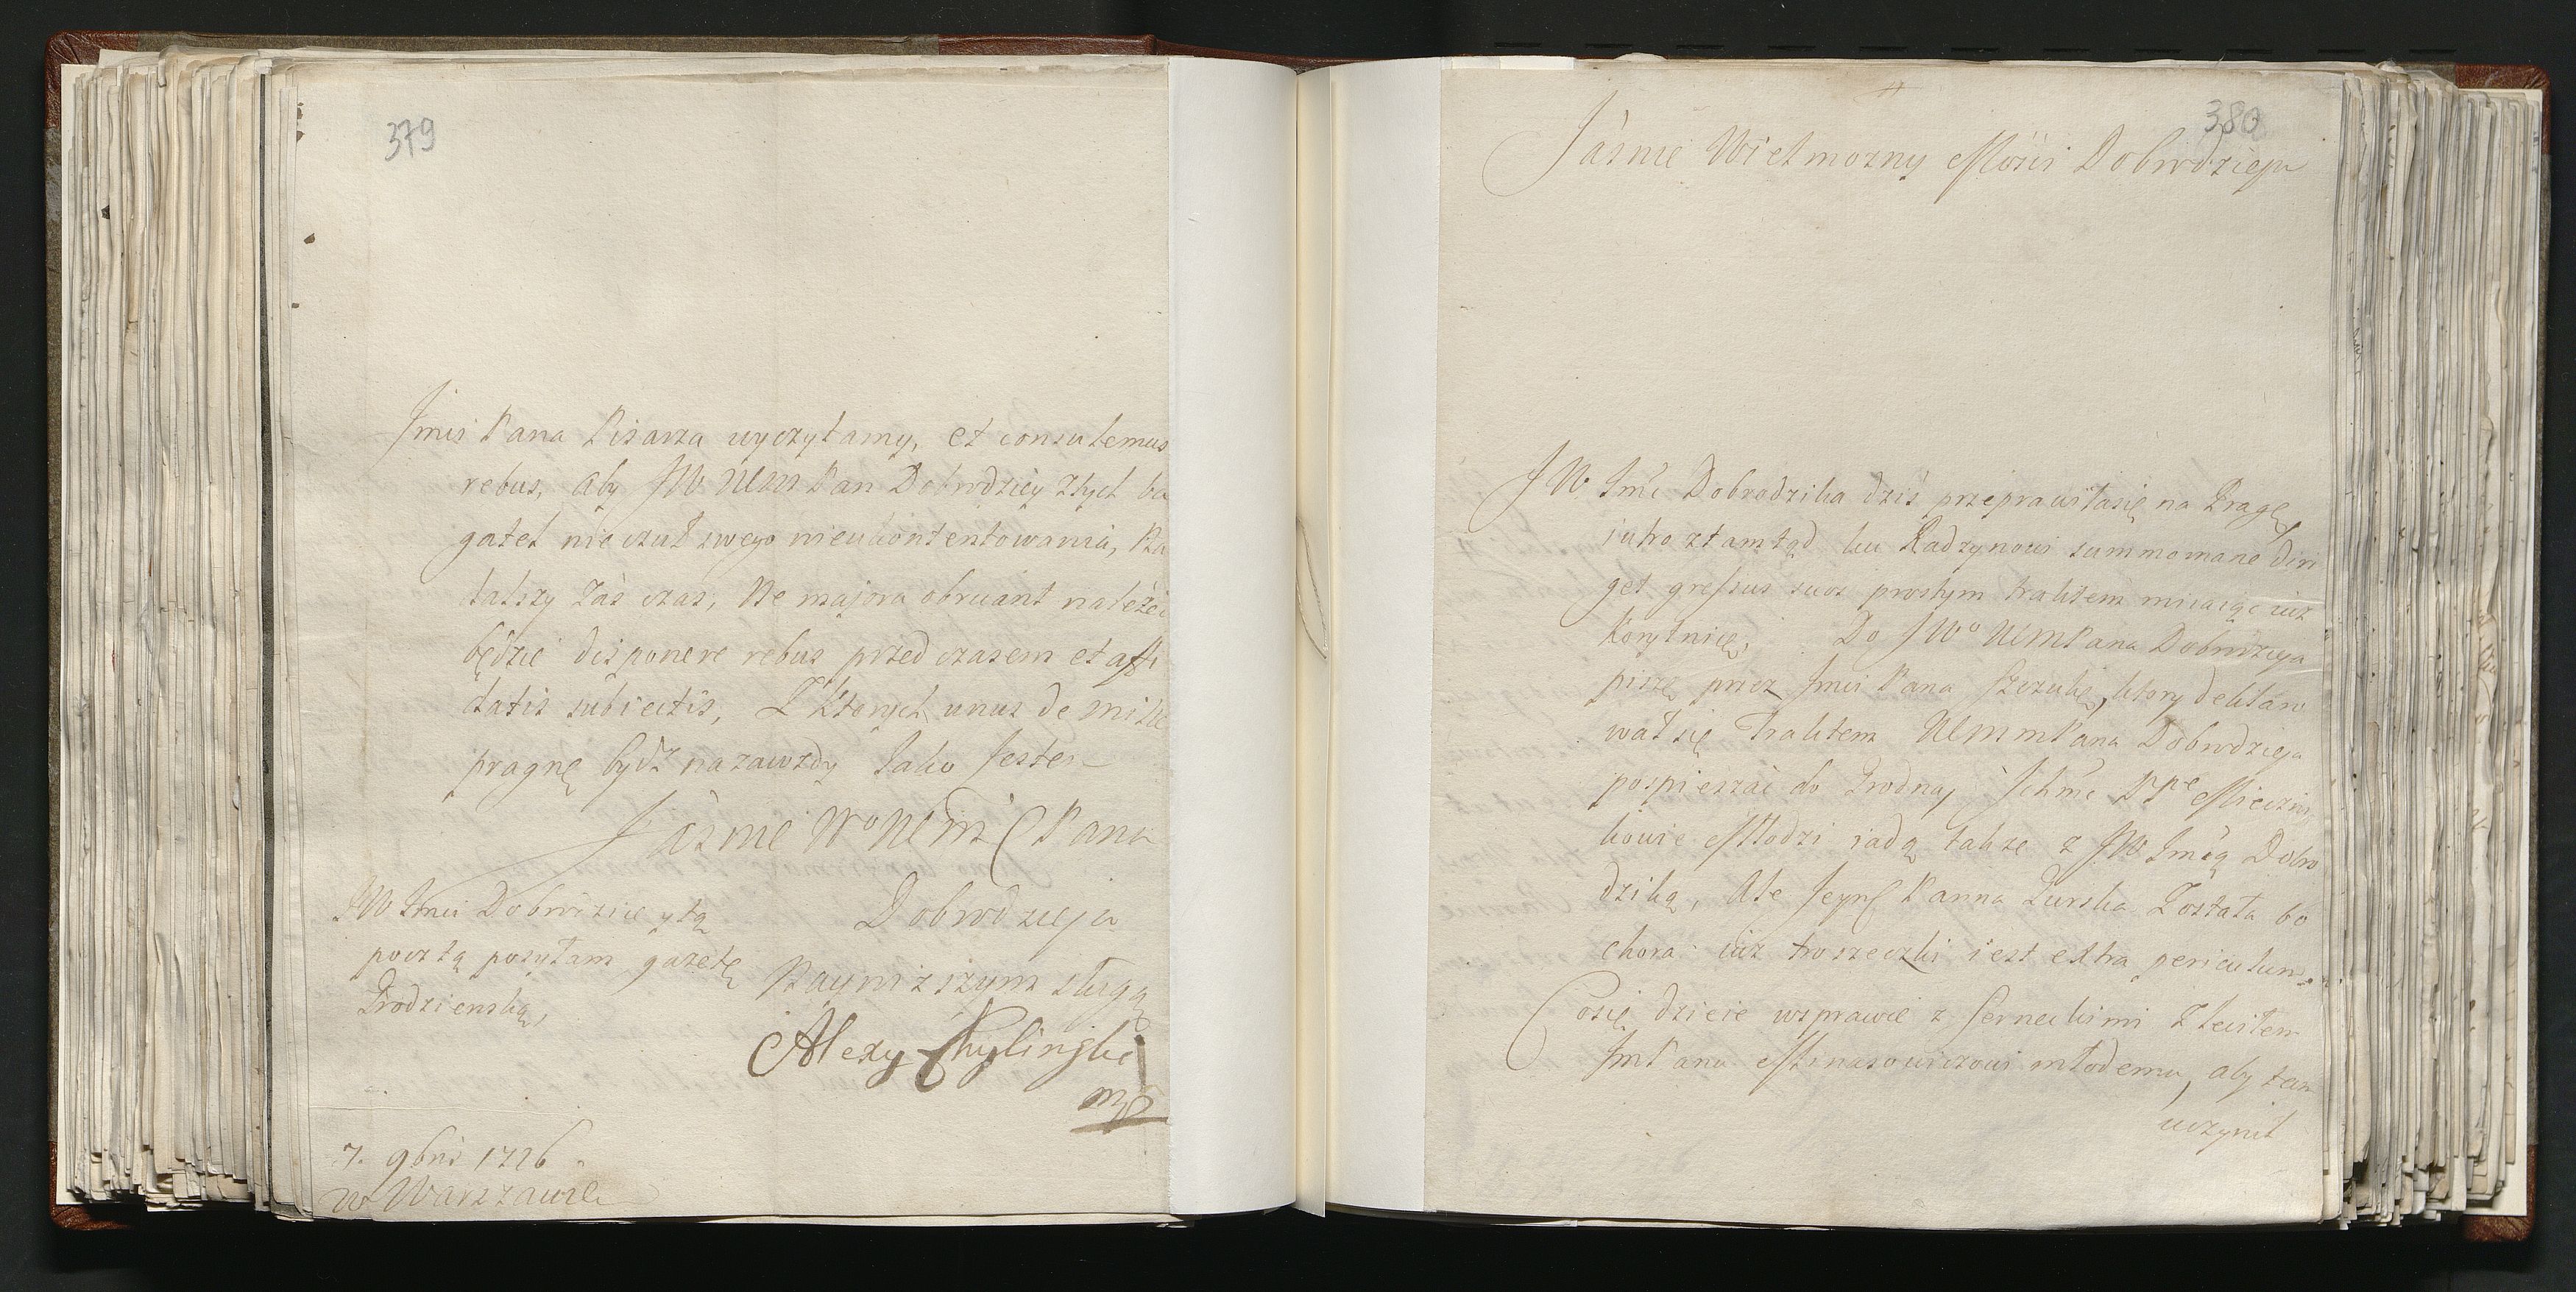 379
Jmci Pana Pisarza wyczytamy, et consulemus
rebus, aby JW WMM Pan Dobrodziey z tych ba
gatel nie czuł swego nieukontentowania, Na
dalszy zaś czas, Ne majora obruant należeć
będzie disponere rebus przed czasem et affi
datis subiectis, Z ktorych unus de mille
pragnę bydź nazawzdy Jako Jestem
Jásnie Wo WMm Pana
Dobrodzieja
Nayniższym sługą
Alexy Chyliński
mp
JW Jmci Dobrodzice y tą
pocztą posyłam gazetę
Grodzienską,
7. 9bris 1726
w Warszawie
380
Jásnie Wielmozny Mośći Dobrodzieju
JW Jmć Dobrodzika dziś przeprawiłasię na Pragę,
jutro ztamtąd ku Radzynowi summo mane diri
get gressus suos prostym traktem miiaiąc iuz
Korytnicę, Do JWo WMPana Dobrodzieja
piszę przez Jmci Pana Szczukę, ktory deklaro
wał się traktem WMmPana Dobrodzieja
pospieszać do Grodna, Ichmć PPe Mieczni
kowie Młodzi jadą takze z JW Jmcią Dobro
dziką, Ale Jeymć Panna Turska Została bo
chora iuz troszeczki iest extra periculum.
Co się dzieie w sprawie z Serneckimi Zleciłem
JmPanu Minasowiczowi młodemu, aby tam
uczynił